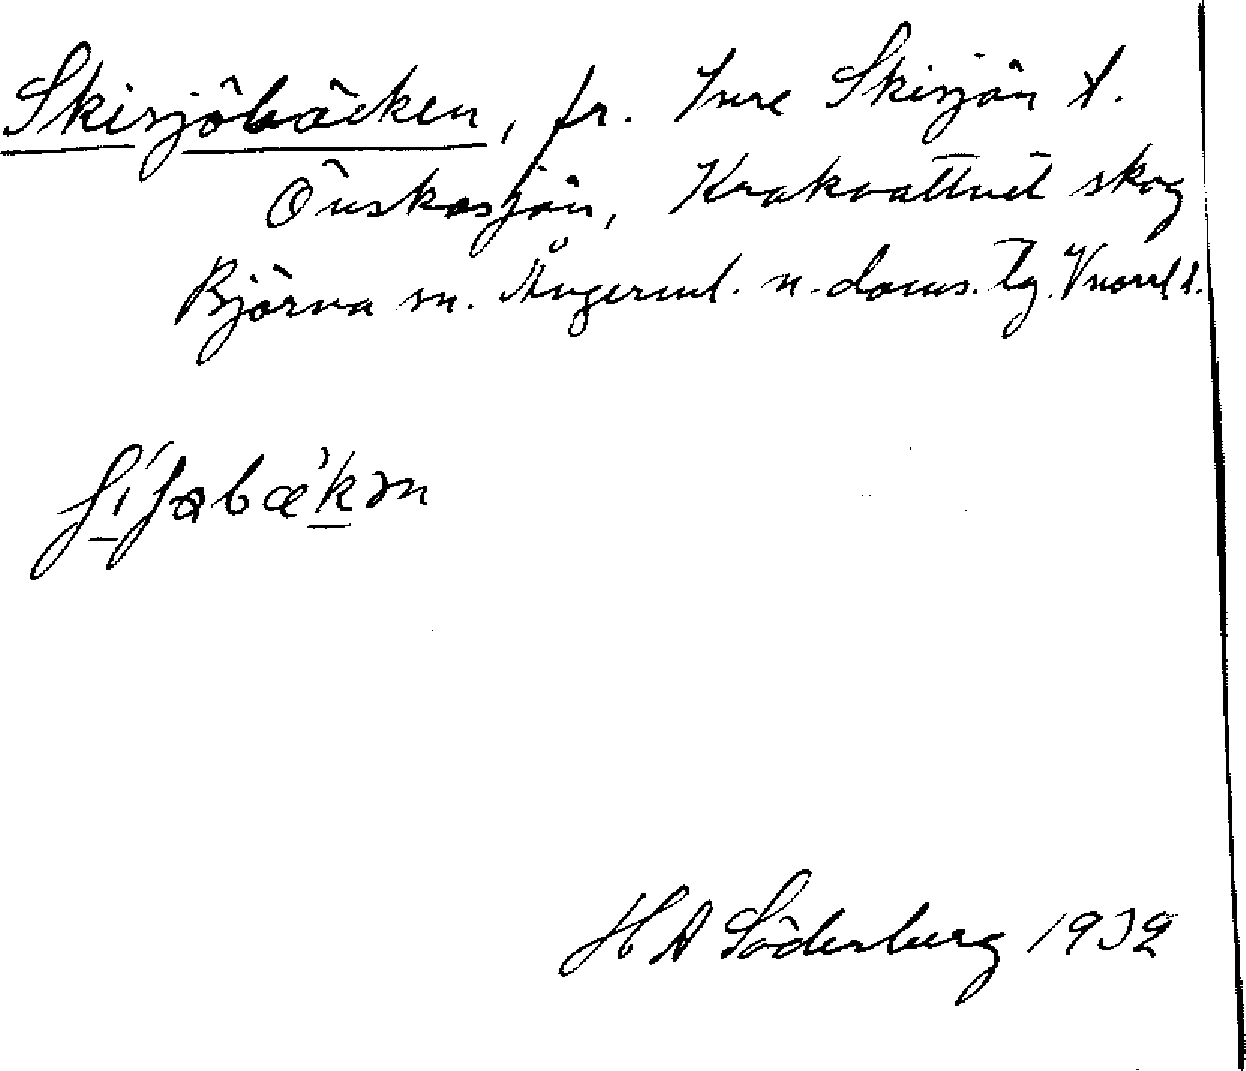 Skirsjöbäcken, fr. Inre Skirsjön t.
Önskasjön, Krakvattnet skog
Björna sn. Ångerml. n. doms. tg. Vnorrl l.
ʃíʃøbæ̀kən
H A Söderberg 1932